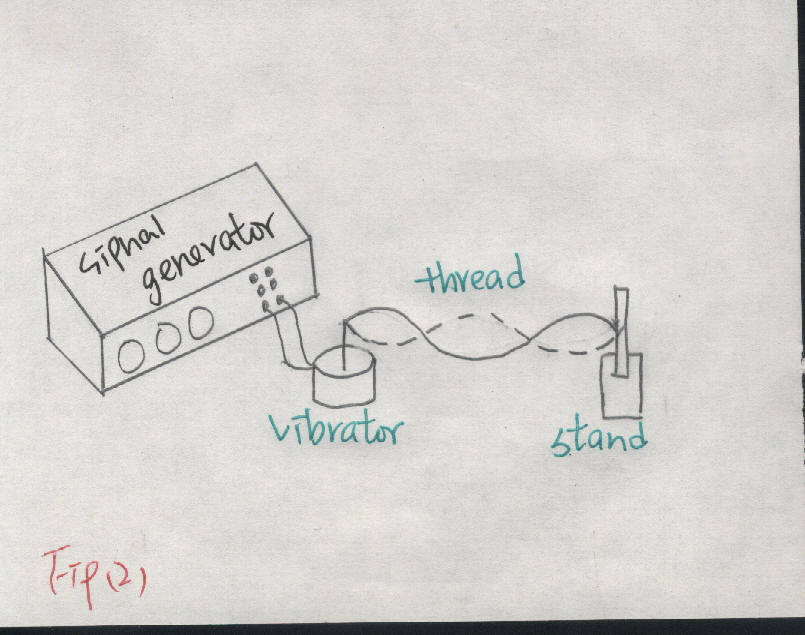 Siphal
generator
thread
vibrator
stand
Fip(2)